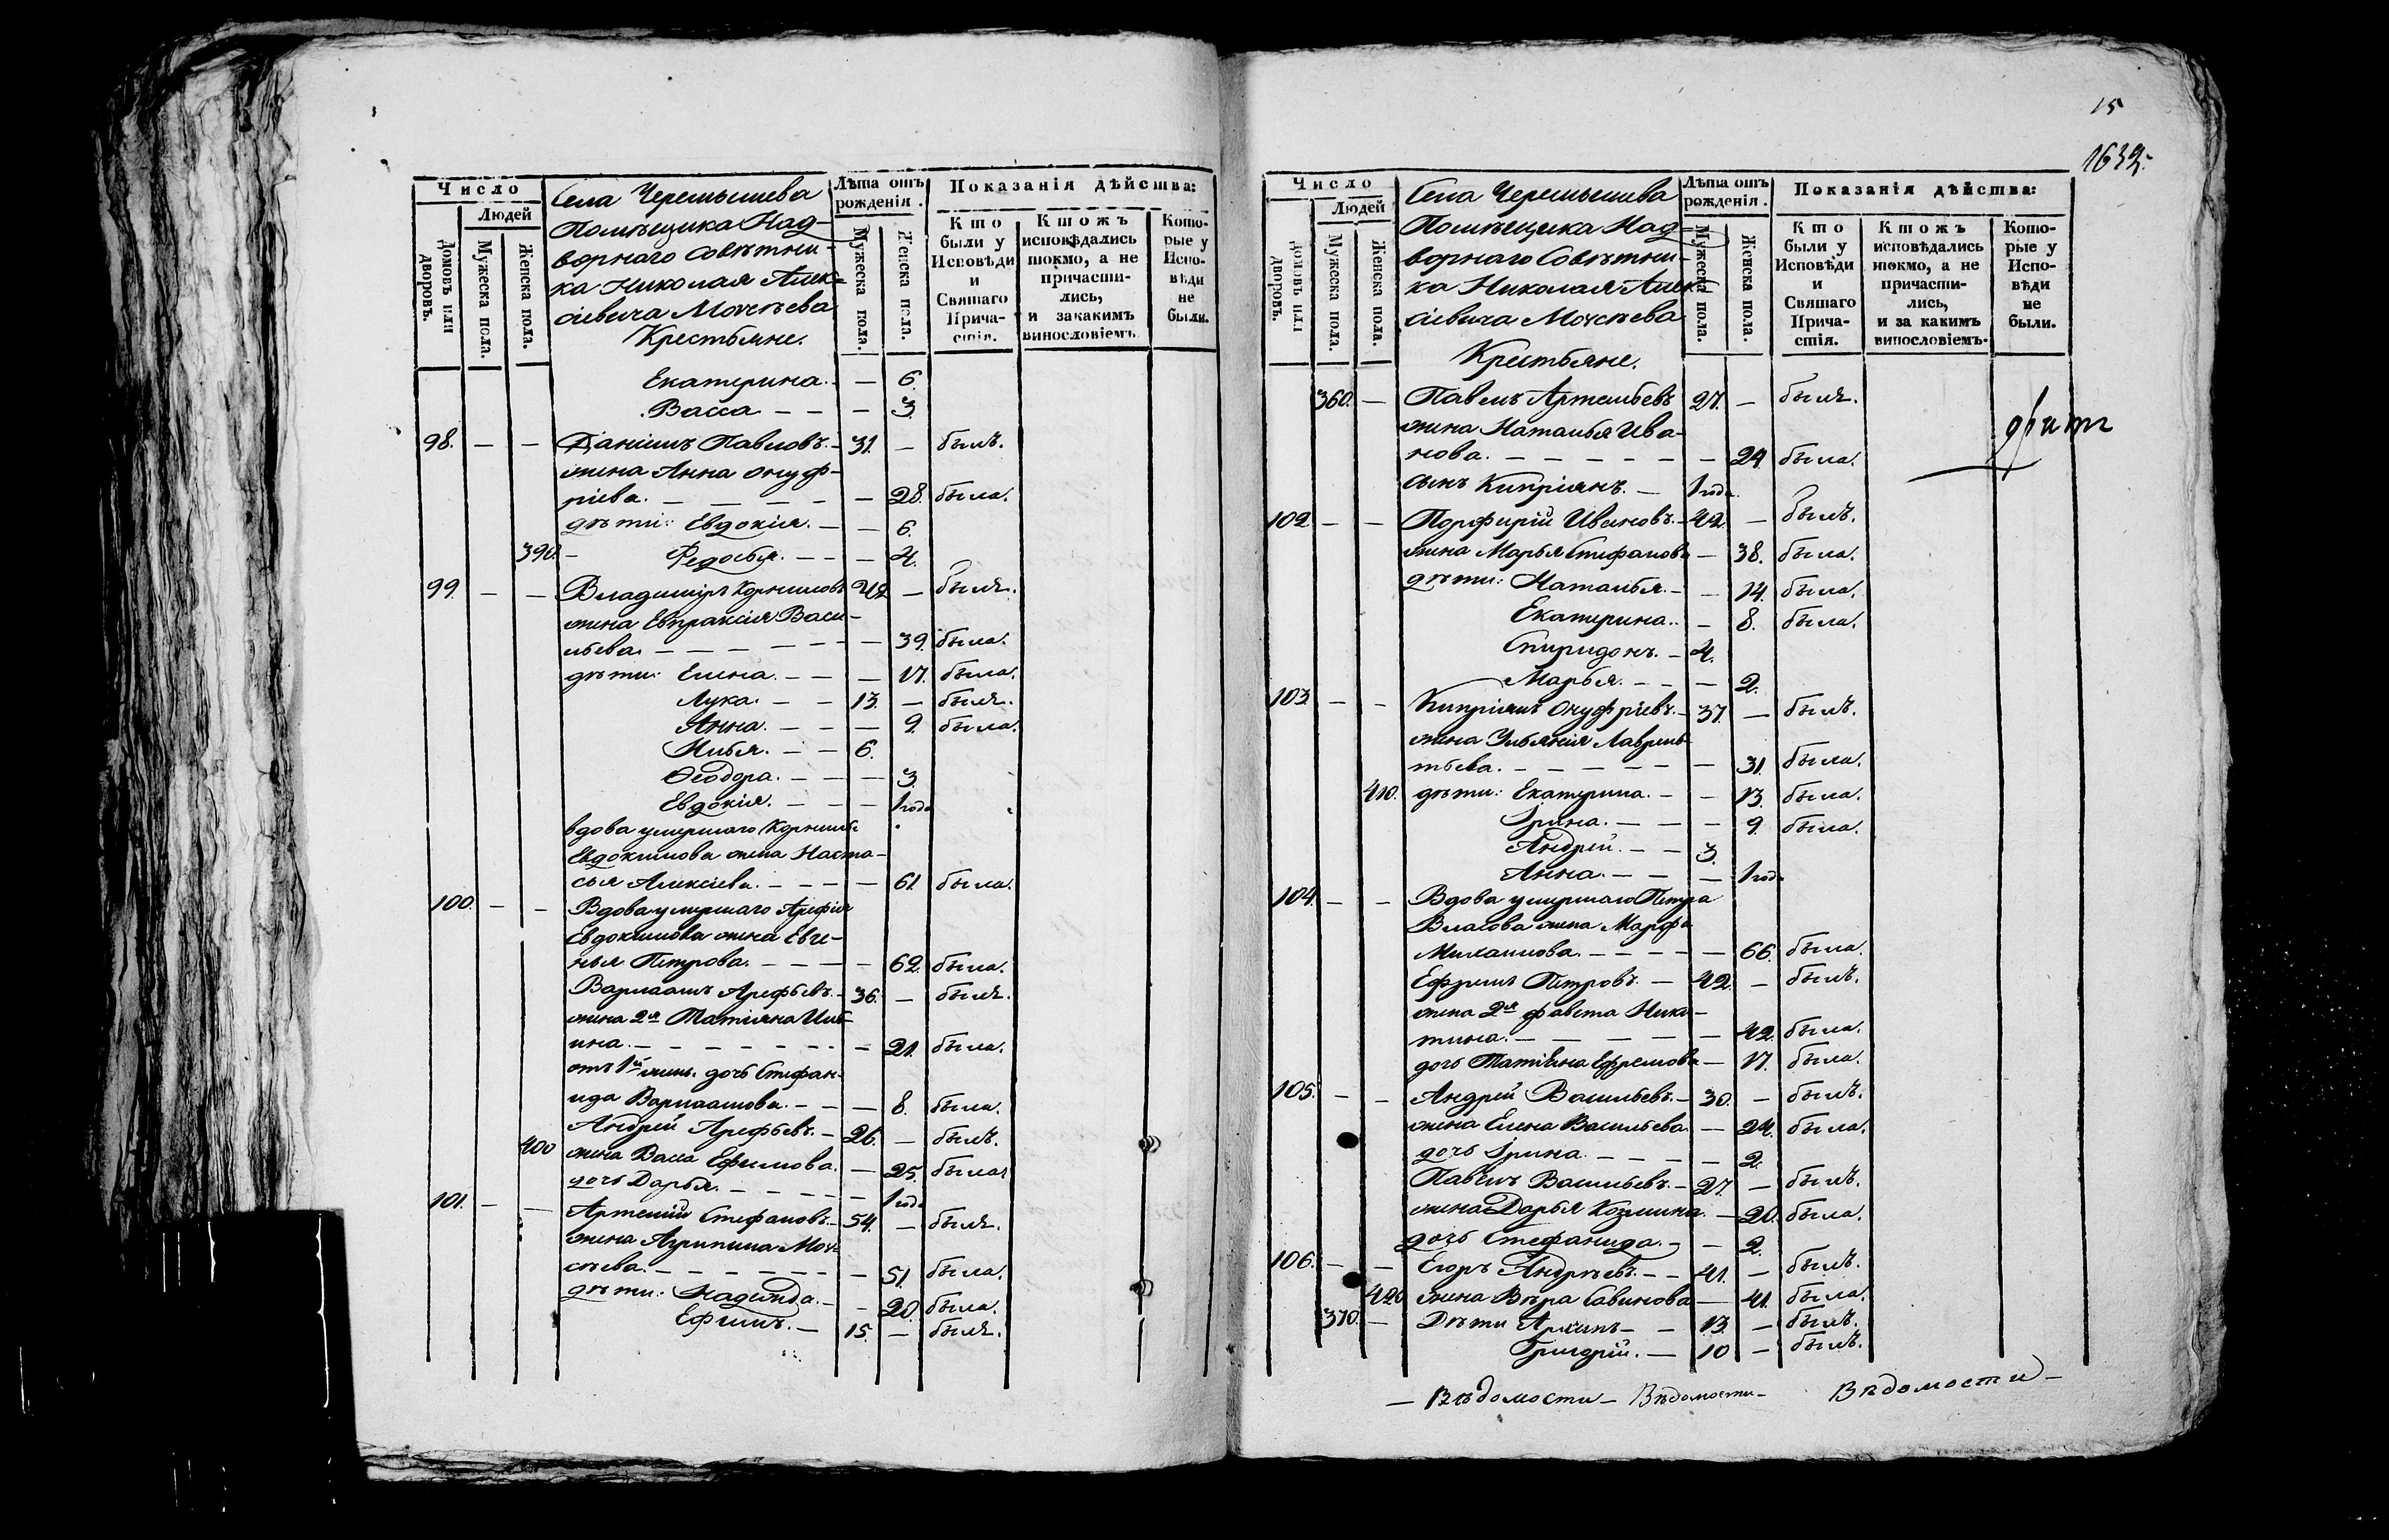 Число
Людей
Домовъ или дворовъ.
Мужеска пола.
Женска пола.
Села Черемышева
Помѣщика Над-
ворнаго Совѣтни-
ка Николая Алек-
сіевича Мочеѣева
Крестьяне.
Лѣта отъ рожденія.
Мужеска пола.
Женска пола.
Показанія дѣйства:
Кто были у Исповѣди и Святаго Причастія.
Ктожъ исповѣдались токмо, а не причастились, и закакимъ винословіемъ.
Которые у Исповѣди не были.
Екатерина. — 6.
Васса — — — 3.
98. — — Даніилъ Павловъ. — 31. — былъ.
жена Анна Онуф-
ріева. — — — — — 28. была.
дѣти: Евдокія. — — 6.
390. — Федосья. — — — 4.
99. — — Владиміръ Корниловъ 42 — былъ.
жена Евпраксія Васи-
льева. — — — — — 39. была.
дѣти: Елена. — — — 17. была.
Лука. — — 13. — былъ.
Анна. — — — 9. была.
Илья. — — 6.
Ѳеодора. — — — 3.
Евдокія. — — — 1 года
вдова умершаго Корнила
Евдокимова жена Наста-
сья Алексіева. — — — — 61 была.
100. — — Вдова умершаго Арефія
Евдокимова жена Евге-
нья Петрова. — — — — 62. была.
Варлаамъ Арефьевъ. — 36. — былъ.
жена 2я Татіяна Иль-
ина. — — — — — — 21. была.
отъ 1й жены дочь Стефан-
ида Варлаамова. — — — 8. была.
Андрей Арефьевъ. — 26. — былъ.
400 жена Васса Ефимова. — 25. была
дочь Дарья. — — — — 1 года
101. — — Артемій Стефановъ. — 54. — былъ.
жена Агрипина Мои-
сѣева. — — — — — — 51. была.
дѣти: Надежда. — — 20. была.
Ефимъ. — 15. — былъ.
15
1632.
Число
Людей
Домовъ или дворовъ.
Мужеска пола.
Женска пола.
Села Черемышева
Помѣщика Над-
ворнаго Совѣтни-
ка Николая Алек-
сіевича Мочеѣева
Крестьяне.
Лѣта отъ рожденія.
Мужеска пола.
Женска пола.
Показанія дѣйства:
Кто были у Исповѣди и Святаго Причастія.
Ктожъ исповѣдались токмо, а не причастились, и за какимъ винословіемъ.
Которые у Исповѣди не были.
360. — Павелъ Артемьевъ 27. — былъ.
жена Наталья Ива-
нова. — — — — — — 24. была.
сынъ Кипріянъ. — 1 года
102. — — Порфирій Ивановъ. — 42. — былъ.
жена Марья Стефанова — 38. была.
дѣти: Наталья. — — 14. была.
Екатерина. — 8. была.
Спиридонъ. — 4.
Марья. — — — 2.
103. — — Кипріянъ Онуфріевъ. — 37. — былъ.
жена Ульянія Лаврень-
тьева. — — — — — — 31. была.
410. дѣти: Екатерина. — — 13. была.
Ирина. — — — 9. была.
Андрей. — — 3.
Анна. — — — 1 года
104. — — Вдова умершаго Петра
Власова жена Марфа
Михаилова. — — — — — 66. была.
Ефремъ Петровъ. — 42. — былъ.
жена 2я Фавста Ники-
тина. — — — — — — 42. была.
дочь Татіяна Ефремова — 17. была.
105. — — Андрей Васильевъ. — 30. — былъ.
жена Елена Васильева. — 24. была.
дочь Ирина. — — — — — 2.
Павелъ Васильевъ. — 27. — былъ.
жена Дарья Козмина. — 20. была.
дочь Стефанида. — — 2.
106. — — Егоръ Андрѣевъ. — — 41. — былъ.
420 жена Вѣра Савинова — 41. была.
370. — Дѣти Архипъ — — 13. — былъ.
Григорій. — 10 — былъ.
— Вѣдомости — Вѣдомости — Вѣдомости —